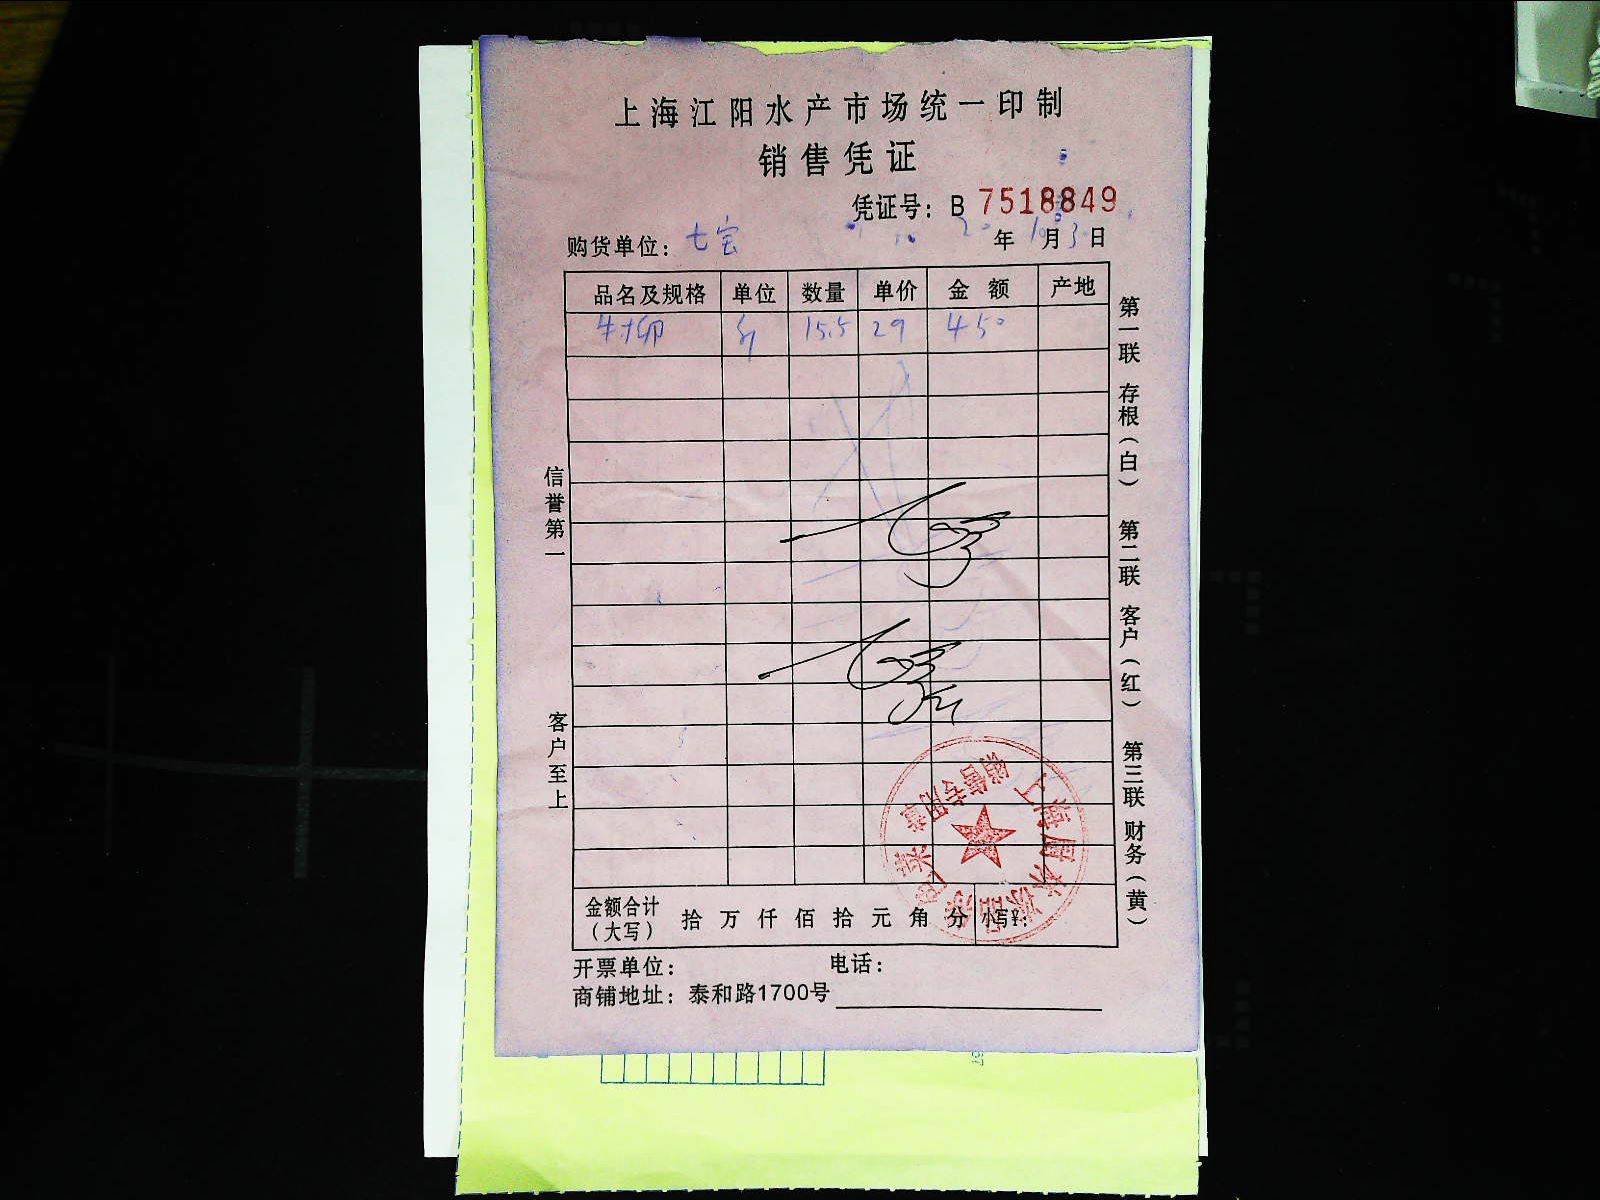 上海江阳水产市场统一印制
销售凭证
凭证号：B 7518849
购货单位：七宝 20年10月3日
品名及规格 单位 数量 单价 金额 产地
斤 15.5 29 450
信誉第一
客户至上
第一联 存根（白） 第二联 客户（红） 第三联 财务（黄）
销售专用章
金额合计（大写） 拾 万 仟 佰 拾 元 角 分 小写¥：
开票单位： 电话：
商铺地址：泰和路1700号